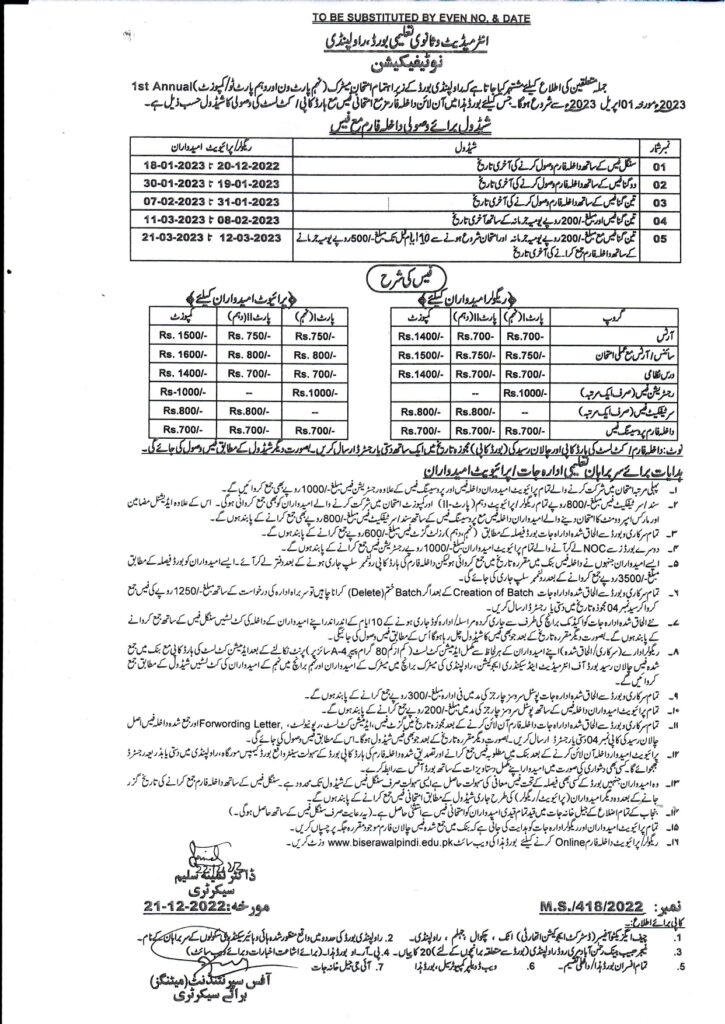 TO BE SUBSTITUTED BY EVEN NO. & DATE
انٹرمیڈیٹ و ثانوی تعلیمی بورڈ، راولپنڈی
نوٹیفیکیشن
جملہ متعلقین کی اطلاع کیلئے مشتہر کیا جاتا ہے کہ راولپنڈی بورڈ کے زیر اہتمام امتحان میٹرک (نہم پارٹ ون اور دہم پارٹ ٹو/کمپوزٹ) 1st Annual
2023ء مورخہ 01 اپریل 2023ء سے شروع ہوگا۔ جس کیلئے بورڈ ہذا میں آن لائن داخلہ فارمز مع امتحانی فیس مع ہارڈ کاپی/کٹ لسٹ کی وصولی کا شیڈول حسب ذیل ہے۔
شیڈول برائے وصولی داخلہ فارم مع فیس
نمبر شمار شیڈول ریگولر/پرائیویٹ امیدواران
01 سنگل فیس کے ساتھ داخلہ فارم وصول کرنے کی آخری تاریخ 20-12-2022 تا 18-01-2023
02 دو گنا فیس کے ساتھ داخلہ فارم وصول کرنے کی آخری تاریخ 19-01-2023 تا 30-01-2023
03 تین گنا فیس کے ساتھ داخلہ فارم وصول کرنے کی آخری تاریخ 31-01-2023 تا 07-02-2023
04 تین گنا فیس اور مبلغ -/200 روپے یومیہ جرمانہ کے ساتھ آخری تاریخ 08-02-2023 تا 11-03-2023
05 تین گنا فیس مع مبلغ -/200 روپے یومیہ جرمانہ اور امتحان شروع ہونے سے 10 ایام قبل تک مبلغ -/500 روپے یومیہ جرمانے 12-03-2023 تا 21-03-2023
کے ساتھ داخلہ فارم جمع کرانے کی آخری تاریخ
فیس کی شرح
﴿ریگولر امیدواران کیلئے﴾ ﴿پرائیویٹ امیدواران کیلئے﴾
گروپ پارٹ I (نہم) پارٹ II (دہم) کمپوزٹ پارٹ I (نہم) پارٹ II (دہم) کمپوزٹ
آرٹس Rs.700- Rs.700- Rs.1400/- Rs.750/- Rs. 750/- Rs. 1500/-
سائنس/آرٹس مع عملی امتحان Rs.750/- Rs.750/- Rs.1500/- Rs. 800/- Rs. 800/- Rs. 1600/-
درس نظامی Rs.700/- Rs.700/- Rs.1400/- Rs. 700/- Rs. 700/- Rs. 1400/-
رجسٹریشن فیس (صرف ایک مرتبہ) Rs.1000/- -- -- Rs.1000/- -- Rs-1000/-
سرٹیفکیٹ فیس (صرف ایک مرتبہ) -- Rs.800/- Rs.800/- -- Rs.800/- Rs.800/-
داخلہ فارم پروسیسنگ فیس Rs.700/- Rs.700/- Rs.700/- Rs.700/- Rs.700/- Rs.700/-
نوٹ: داخلہ فارم/کٹ لسٹ کی ہارڈ کاپی اور چالان رسید کی (بورڈ کاپی) مجوزہ تاریخ میں ایک ساتھ دستی یا رجسٹرڈ ارسال کریں۔ بصورت دیگر شیڈول کے مطابق فیس وصول کی جائے گی۔
ہدایات برائے سربراہان تعلیمی ادارہ جات/پرائیویٹ امیدواران
۱۔ پہلی مرتبہ امتحان میں شرکت کرنے والے تمام پرائیویٹ امیدواران داخلہ فیس اور پروسیسنگ فیس کے علاوہ رجسٹریشن فیس مبلغ -/1000 روپے بھی جمع کروائیں گے۔
۲۔ سند/سرٹیفکیٹ فیس مبلغ -/800 روپے تمام ریگولر/پرائیویٹ دہم (پارٹ-II) اور کمپوزٹ امتحان میں شرکت کرنے والے امیدواران کو بھی جمع کروانی ہوگی۔ اس کے علاوہ ایڈیشنل مضامین
اور مارکس امپروومنٹ کا امتحان دینے والے امیدواران داخلہ فیس مع پروسیسنگ فیس کے ساتھ سند/سرٹیفکیٹ فیس مبلغ -/800 روپے بھی جمع کرانے کے پابند ہوں گے۔
۳۔ تمام سرکاری و بورڈ سے الحاق شدہ ادارہ جات بورڈ فیصلہ کے مطابق (نہم، دہم) رزلٹ گزٹ فیس مبلغ -/600 روپے جمع کرانے کے پابند ہوں گے۔
۴۔ دوسرے بورڈز سے NOC لے کر آنے والے تمام پرائیویٹ امیدواران مبلغ -/1000 روپے رجسٹریشن فیس جمع کرانے کے پابند ہوں گے۔
۵۔ ایسے امیدواران جنہوں نے داخلہ فیس بنک میں مقررہ تاریخ میں جمع کروائی ہو لیکن داخلہ فارم کی ہارڈ کاپی رولنمبر سلپ جاری ہونے کے بعد دفتر لے کر آئے۔ ایسے امیدواران کو بورڈ فیصلہ کے مطابق
مبلغ -/3500 روپے جمع کروانے کے بعد رولنمبر سلپ جاری کی جائے گی۔
۶۔ تمام سرکاری و بورڈ سے الحاق شدہ ادارہ جات Creation of Batch کے بعد اگر Batch ختم (Delete) کرانا چاہیں تو سربراہ ادارہ کی درخواست کے ساتھ مبلغ -/1250 روپے کی فیس جمع
کروا کر رسید نمبر 04 مجوزہ تاریخ میں دستی یا رجسٹرڈ ارسال کریں۔
۷۔ نئے الحاق شدہ ادارہ جات کو اکیڈمک برانچ کی طرف سے جاری کردہ مراسلہ/ادارہ کوڈ جاری ہونے کے 10 ایام کے اندر اندر اپنے امیدواران کے داخلہ کی کٹ لسٹیں سنگل فیس کے ساتھ جمع کروانے
کے پابند ہوں گے۔ بصورت دیگر مقررہ تاریخ کے بعد جو بھی فیس کا شیڈول چل رہا ہوگا اس کے مطابق فیس وصول کی جائیگی۔
۸۔ ریگولر ادارے (سرکاری/الحاق شدہ) اپنے امیدواران کے ہر لحاظ سے مکمل ایڈمیشن کٹ لسٹ (کم از کم 80 گرام پیپر A-4 سائز) پرنٹ نکالنے کے بعد ایڈمیشن کٹ لسٹ کی ہارڈ کاپی مع بنک میں جمع
شدہ فیس چالان رسید بورڈ آف انٹرمیڈیٹ اینڈ سیکنڈری ایجوکیشن، راولپنڈی کی میٹرک برانچ میں میٹرک کے امیدواران اور نہم برانچ میں نہم کے امیدواران کی کٹ لسٹیں شیڈول کے مطابق جمع
کروائیں گے۔
۹۔ تمام سرکاری و بورڈ سے الحاق شدہ ادارہ جات پوسٹل سروسز چارجز کی مد میں فی ادارہ مبلغ -/300 روپے جمع کرانے کے پابند ہوں گے۔
۱۰۔ تمام پرائیویٹ امیدواران داخلہ فیس کے ساتھ پوسٹل سروسز چارجز کی مد میں مبلغ -/200 روپے جمع کرانے کے پابند ہوں گے۔
۱۱۔ تمام سرکاری و بورڈ سے الحاق شدہ ادارہ جات داخلہ فارم آن لائن کرنے کے بعد مجوزہ تاریخ میں گزٹ فیس، ایڈمیشن کٹ لسٹ، ریونیو لسٹ، Forwording Letter اور جمع شدہ داخلہ فیس اصل
چالان رسید کی کاپی نمبر 04 دستی یا رجسٹرڈ ارسال کریں۔ بصورت دیگر مقررہ تاریخ کے بعد جو بھی فیس شیڈول ہوگا۔ اس کے مطابق فیس وصول کی جائے گی۔
۱۲۔ پرائیویٹ امیدوار داخلہ آن لائن کرنے کے بعد بنک میں مطلوبہ فیس جمع کرانے اور تصدیق شدہ داخلہ فارم کی ہارڈ کاپی بورڈ کے سہولت سینٹر واقع بورڈ کیمپس مورگاہ، راولپنڈی میں دستی یا بذریعہ رجسٹرڈ
بھجوائے گا۔ کسی بھی دشواری کی صورت میں امیدوار اپنے مکمل دستاویزات کے ساتھ بورڈ آفس سے رابطہ کرے۔
۱۳۔ وہ امیدواران جنہیں بورڈ کے کسی بھی فیصلہ کے تحت فیس معافی کی سہولت حاصل ہے ایسی سہولت صرف سنگل فیس کے شیڈول تک محدود ہے۔ سنگل فیس کے ساتھ داخلہ فارم جمع کرانے کی تاریخ گزر
جانے کے بعد وہ دیگر امیدواران (پرائیویٹ/ریگولر) کی طرح جاری شیڈول کے مطابق امتحانی فیس جمع کرانے کے پابند ہوں گے۔
۱۴۔ پنجاب کے تمام اضلاع کے جیل خانہ جات میں قید تمام قیدی امیدواران کو امتحانی فیس سے استثنیٰ حاصل ہے۔ (یہ رعایت صرف سنگل فیس کے ساتھ حاصل ہوگی۔)
۱۵۔ تمام پرائیویٹ امیدواران اور ریگولر ادارہ جات کو ہدایت کی جاتی ہے کہ بنک میں جمع شدہ فیس چالان فارم موجود مقررہ جگہ پر چسپاں کریں۔
۱۶۔ ریگولر/پرائیویٹ داخلہ فارم Online کرنے کیلئے بورڈ ہذا کی ویب سائٹ www.biserawalpindi.edu.pk وزٹ کریں۔
ڈاکٹر تہمینہ سلیم
سیکرٹری
نمبر: M.S./418/2022 مورخہ: 21-12-2022
کاپی برائے اطلاع:۔
1. چیف ایگزیکٹو آفیسر (ڈسٹرکٹ ایجوکیشن اتھارٹی) اٹک، چکوال، جہلم، راولپنڈی۔ 2. راولپنڈی بورڈ کی حدود میں واقع منظور شدہ ہائی و ہائیر سیکنڈری سکولوں کے سربراہان کے نام۔
3. منیجر حبیب بینک رحمن آباد مری روڈ راولپنڈی (بورڈ سے متعلقہ برانچوں کے لئے) 20 کاپیاں۔ 4. پی۔آر۔او بورڈ ہذا۔ (برائے اشاعت اخبارات و برائے ویب سائٹ)
5. تمام افسران بورڈ ہذا/داخلی تقسیم۔ 6. ویب ڈویلپر کمپیوٹر سیل، بورڈ ہذا 7. آئی جی جیل خانہ جات
آفس سپرنٹنڈنٹ (میٹنگز)
برائے سیکرٹری